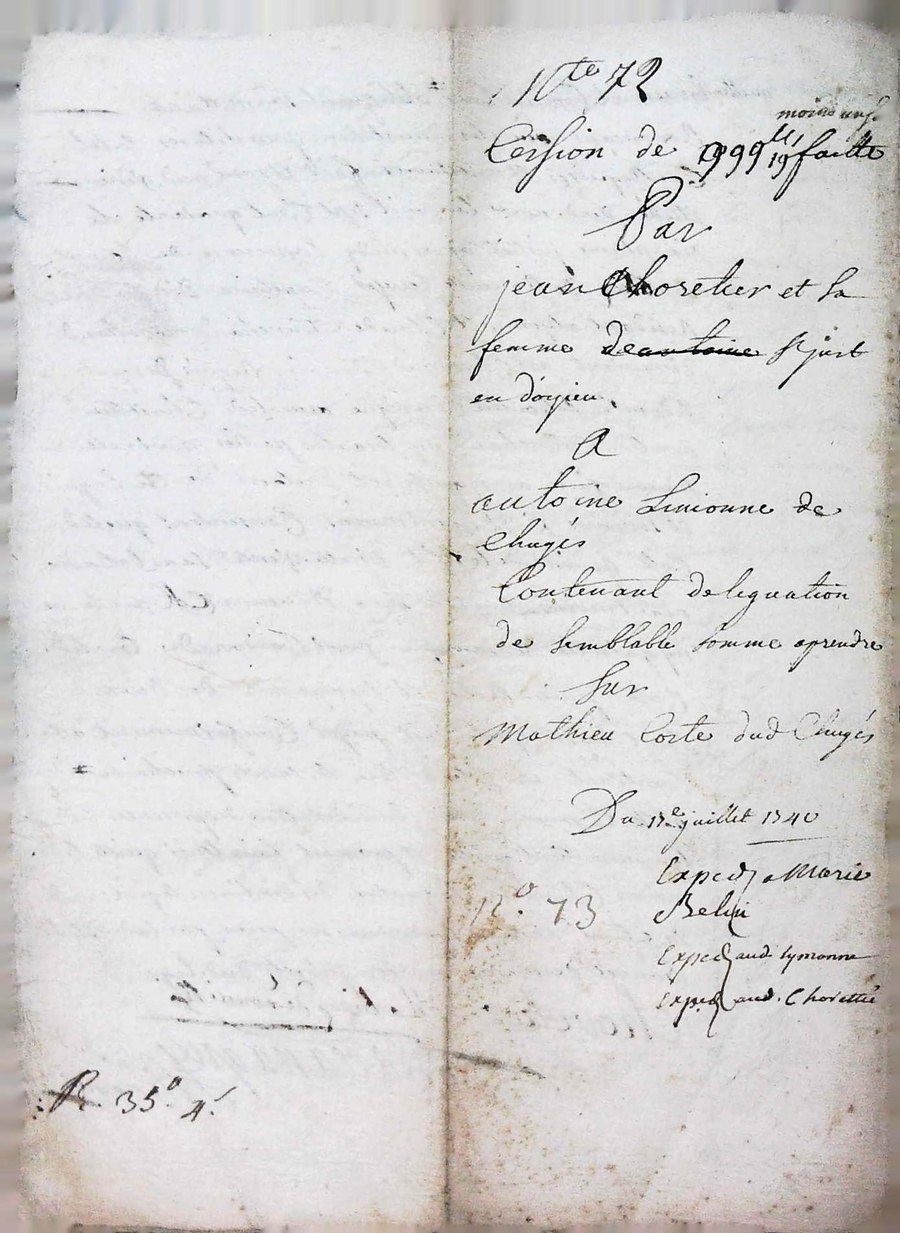 Nte 72
moins un s.
Cession de 999 ll 19 s faitte
Par
jean Choretier et sa
femme de antoine St just
en doyieu
A
antoine Simonne de
Chugés
Contenant deleguation
de semblable somme aprendre
sur
Mathieu Coste dud Chugés
Du 13e juillet 1740
Exped a Marie
Belin
no. 73
Exped aud symonne
Exped aud. Chorettié
R. 35 s 4 d